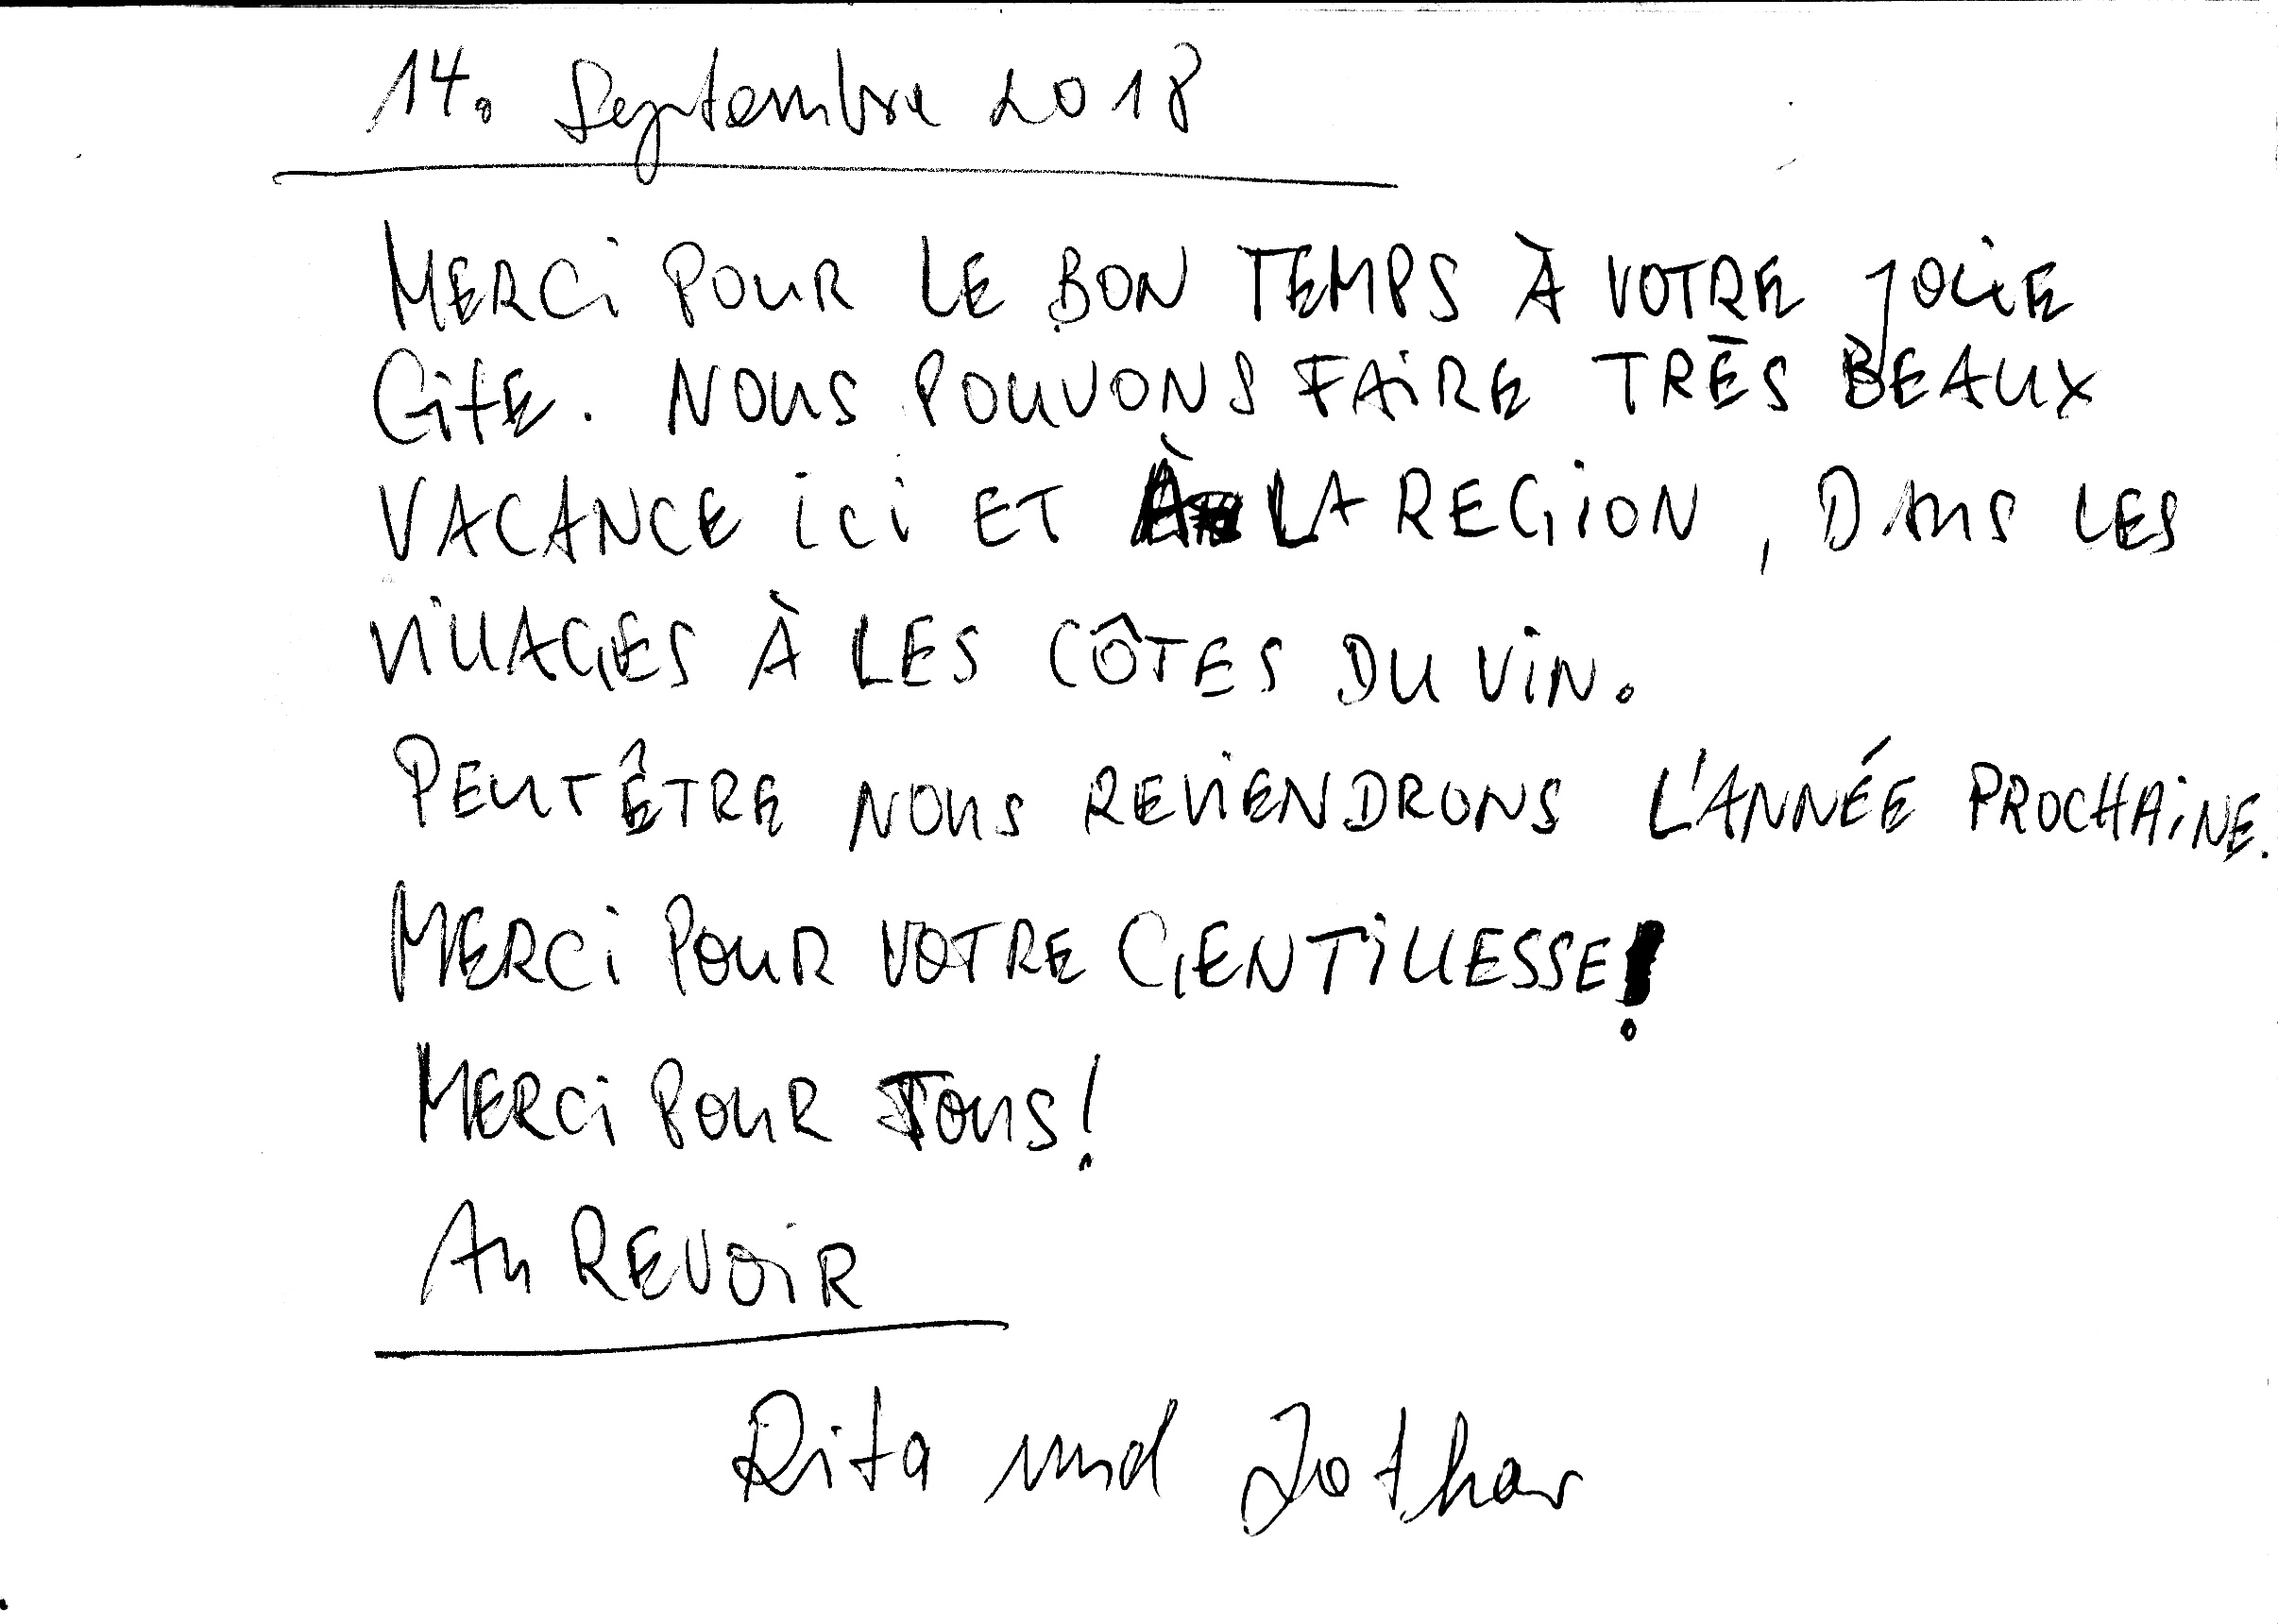 14. Septembre 2018
MERCi POUR LE BON TEMPS À VOTRE JOLIE
GitE. NOUS POUVONS FAiRE TRÈS BEAUX
VACANCE ici ET À LA REGiON, DANS LES
ViLLAGES À LES CÔTES DU ViN.
PEUT ÊTRE NOUS REViENDRONS L'ANNÉE PROCHAiNE.
MERCi POUR VOTRE GENTiLLESSE!
MERCi POUR TOUS!
AU REVOiR
Rita und Lothar